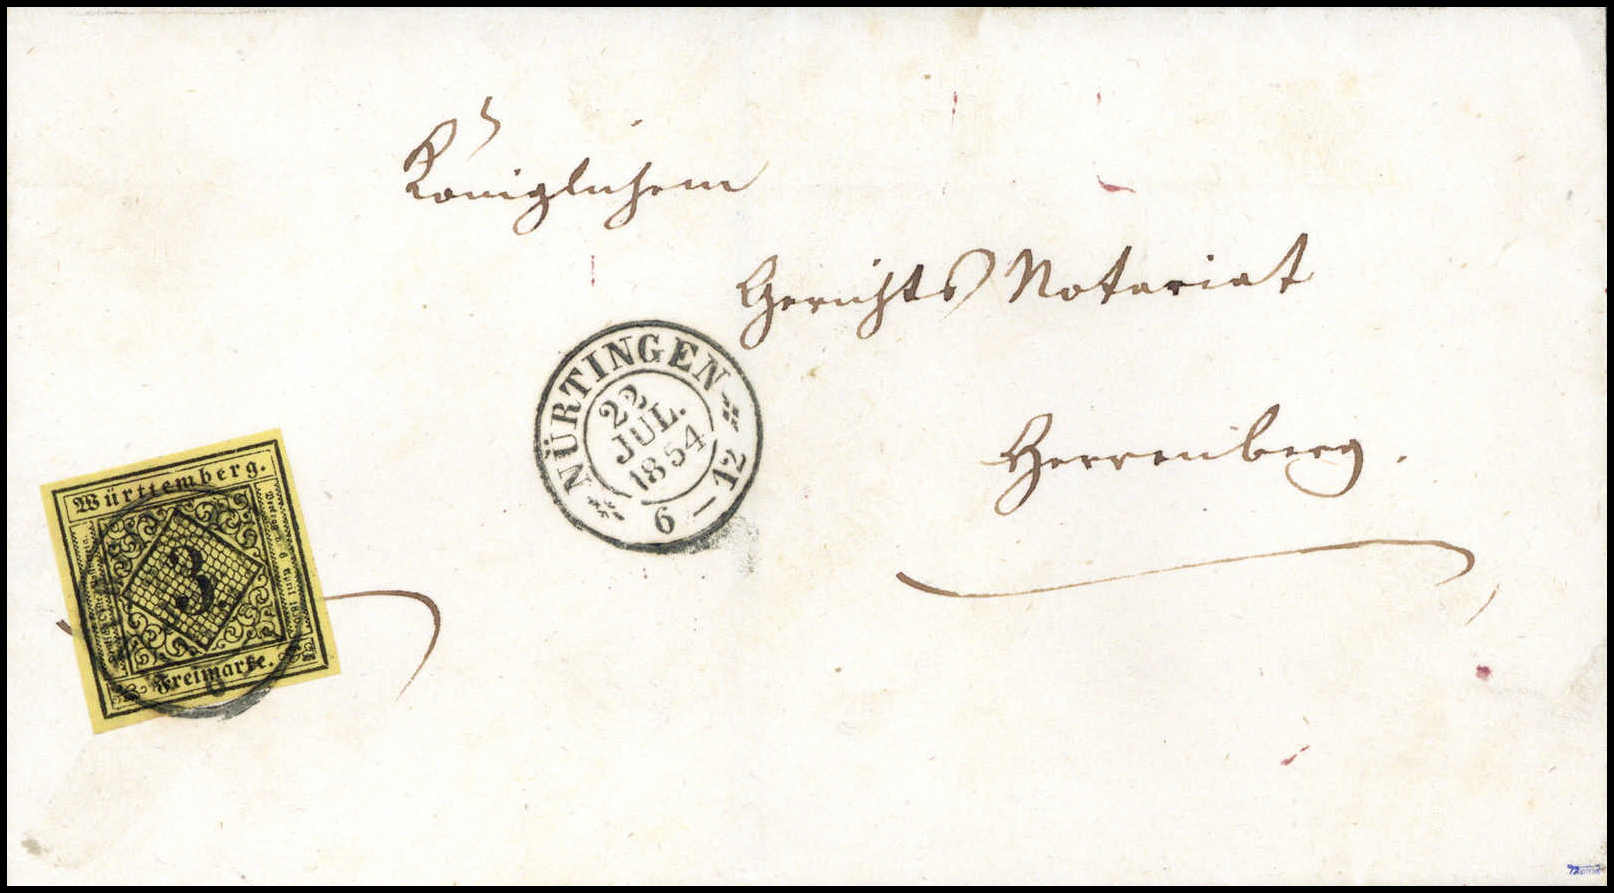 Königlichem
Gerichts Notariat
Herrenberg.
NÜRTINGEN
22
JUL.
1854
6 – 12
Württemberg.
3
Freimarke.